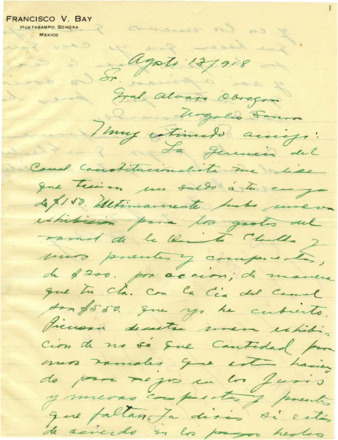 1
FRANCISCO V. BAY
HUATABAMPO, SONORA
MEXICO
Agosto 12/918
Sr.
Gral Alvaro Obregon
Nogales Sonora
Muy estimado amigo:
La Gerencia del
Canal Constitucionalista me dice
que tienen un saldo á tu cargo
de $150. Ultimamente hubo nueva
exhibicion para los gastos del
ramal de la
unos puentes y compuertas,
de $200. por accion; de manera
que tu cta. con la Cia del Canal
son $550. que yo he cubierto.
Piensan decretar nueva exhibi-
cion de no sé que cantidad para
unos ramales que estan hacien
do para riegos en los
y nuevas compuertas y puentes
que faltan. Tu dirás si estás
de acuerdo en los pagos hechos